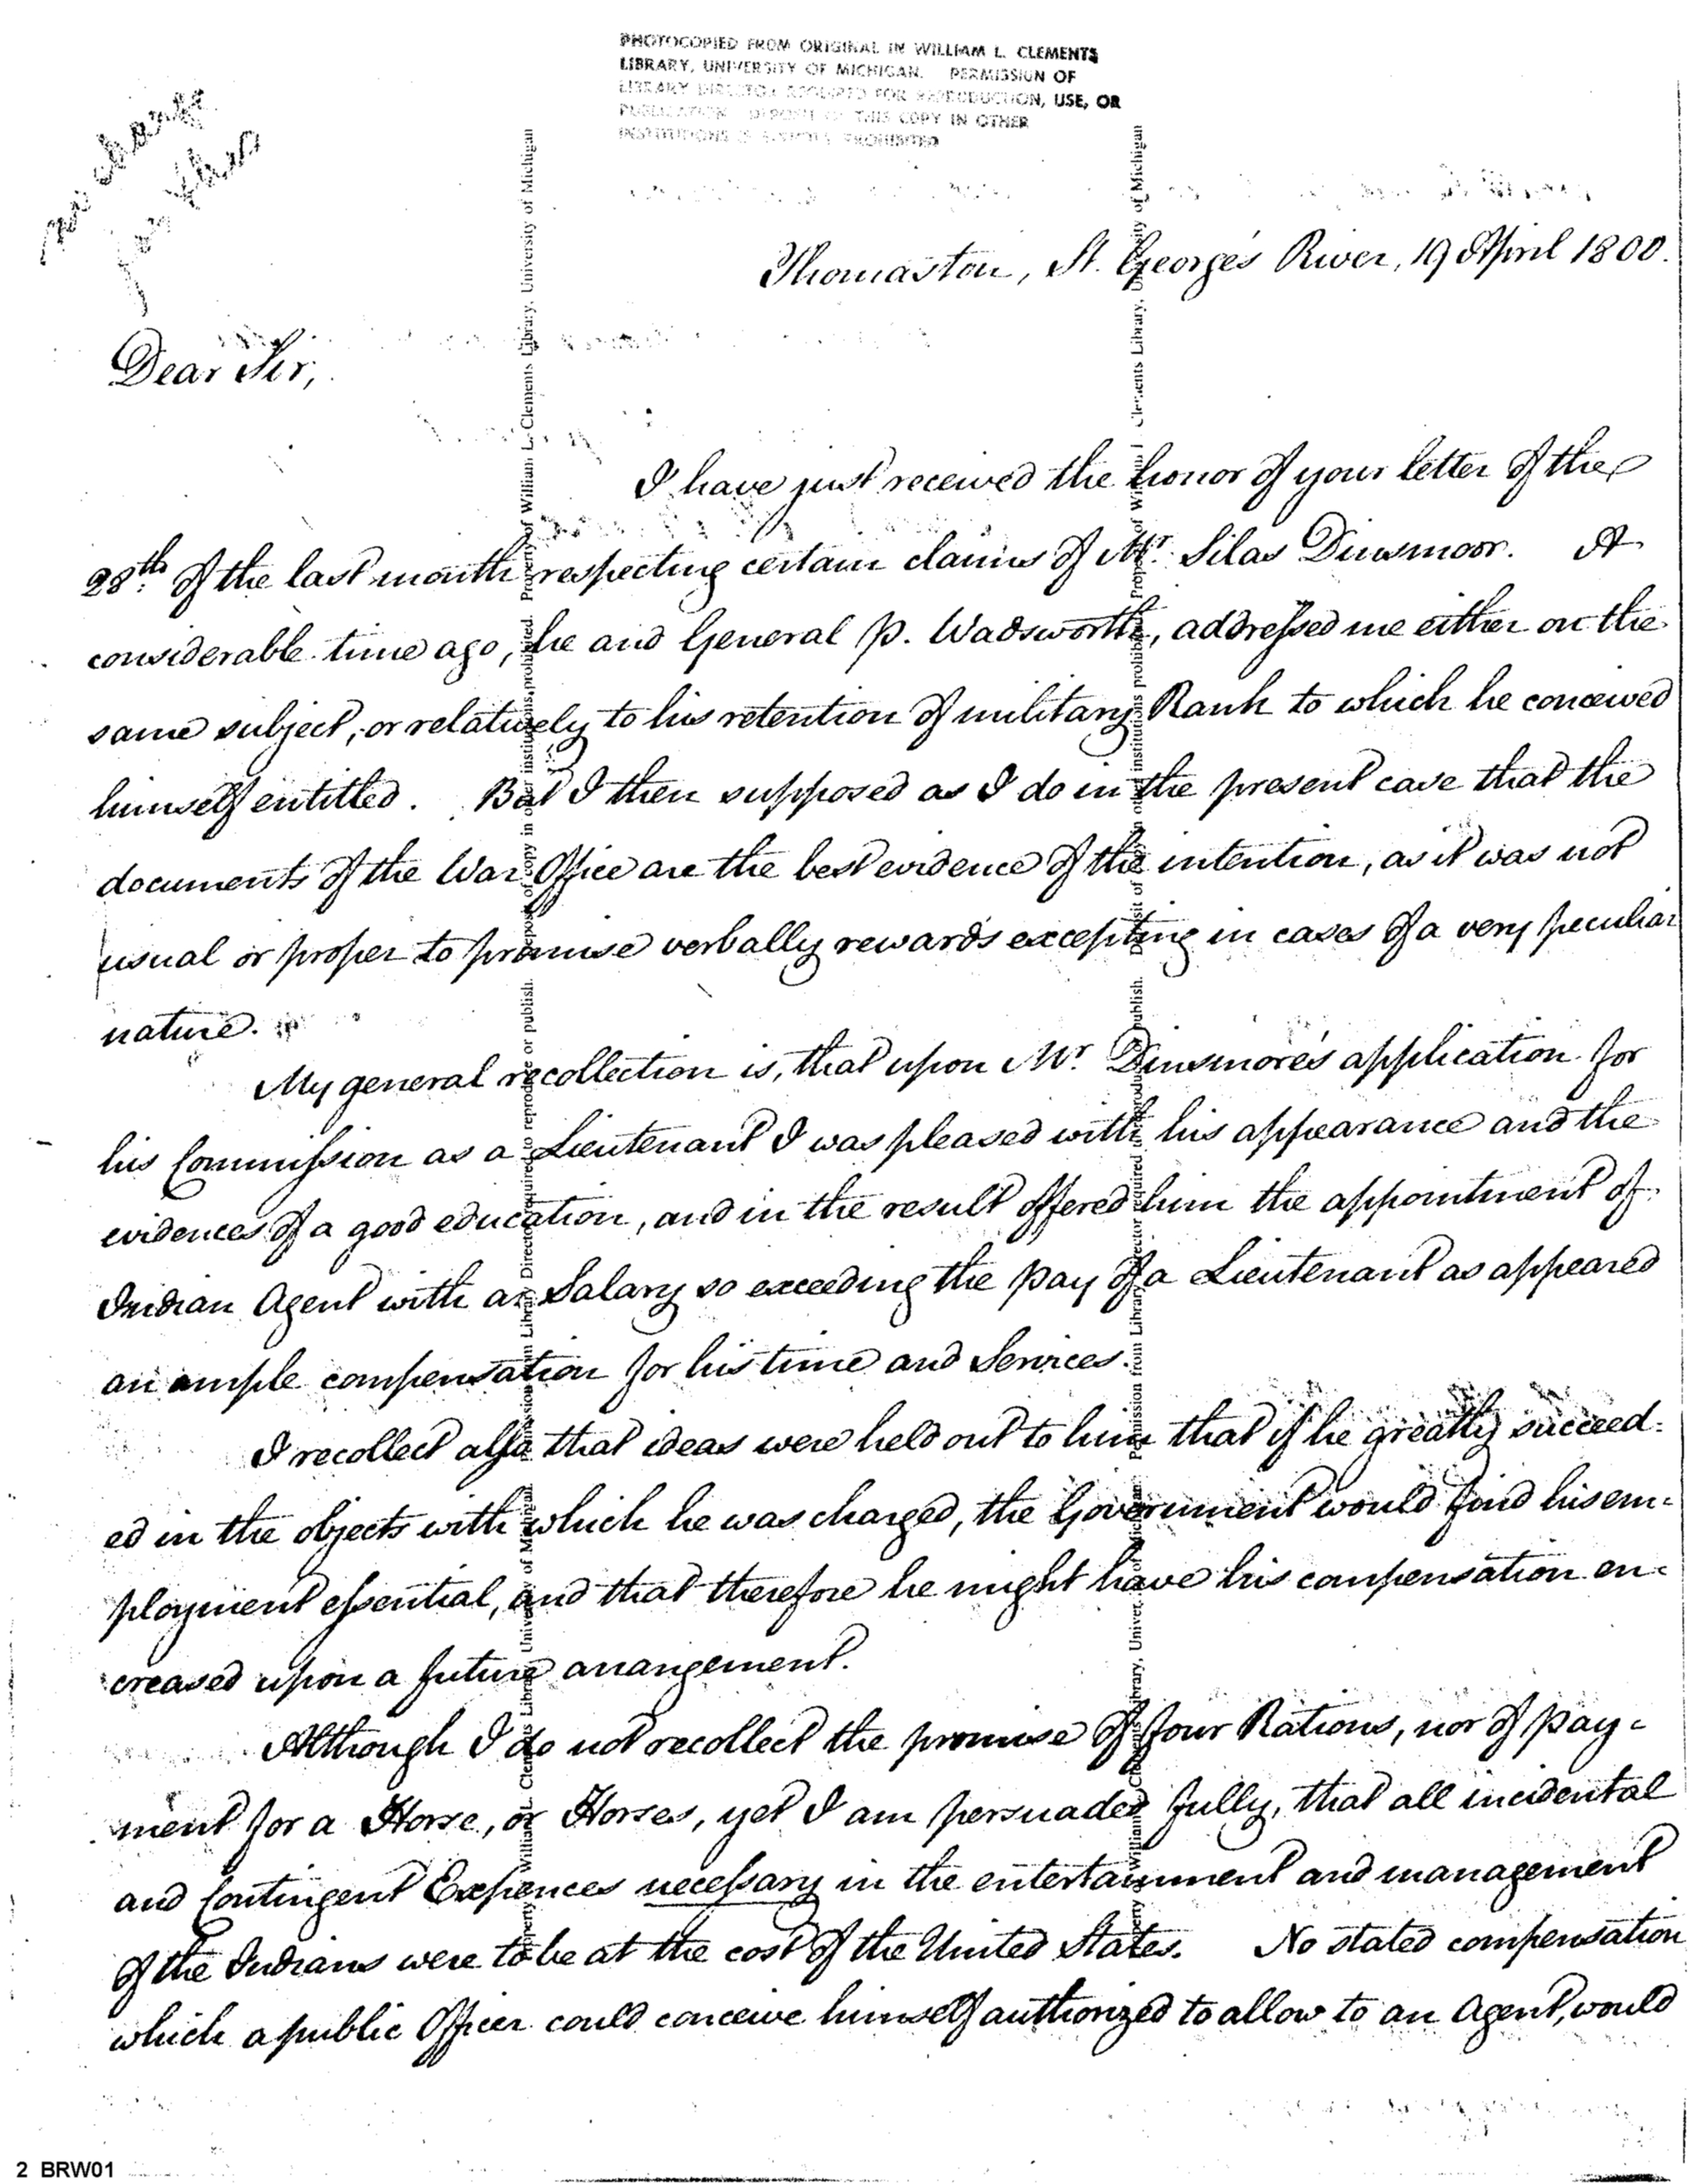 PHOTOCOPIED FROM ORIGINAL IN WILLIAM L. CLEMENTS
LIBRARY, UNIVERSITY OF MICHIGAN. PERMISSION OF
LIBRARY DIRECTOR REQUIRED FOR REPRODUCTION, USE, OR
PUBLICATION. DEPOSIT OF THIS COPY IN OTHER
INSTITUTIONS IS PROHIBITED
no charge
for this
Thomaston, St. George's River, 19 April 1800.
Dear Sir,
I have just received the honor of your letter of the
28th. of the last month respecting certain claims of Mr. Silas Dinsmoor. A
considerable time ago, he and General P. Wadsworth, addressed me either on the
same subject, or relatively to his retention of military Rank to which he conceived
himself entitled. But I then supposed as I do in the present case that the
documents of the War Office are the best evidence of the intention, as it was not
usual or proper to promise verbally rewards excepting in cases of a very peculiar
nature.
My general recollection is, that upon Mr. Dinsmore's application for
his Commission as a Lieutenant I was pleased with his appearance and the
evidences of a good education, and in the result offered him the appointment of
Indian Agent with a Salary so exceeding the pay of a Lieutenant as appeared
an ample compensation for his time and Services.
I recollect also that ideas were held out to him that if he greatly succeed=
ed in the objects with which he was charged, the Government would find his em=
ployment essential, and that therefore he might have his compensation en=
creased upon a future arrangement.
Although I do not recollect the promise of four Rations, nor of pay=
ment for a Horse, or Horses, yet I am persuaded fully, that all incidental
and Contingent Expences necessary in the entertainment and management
of the Indians were to be at the cost of the United States. No stated compensation
which a public Officer could conceive himself authorized to allow to an Agent, would
Property of William L. Clements Library, University of Michigan
Property of William L. Clements Library, University of Michigan
2 BRW01